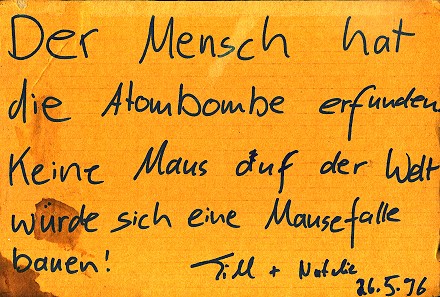 Der Mensch hat
die Atombombe erfunden
Keine Maus auf der Welt
würde sich eine Mausefalle
bauen!
Till + Natalie
26.5.96